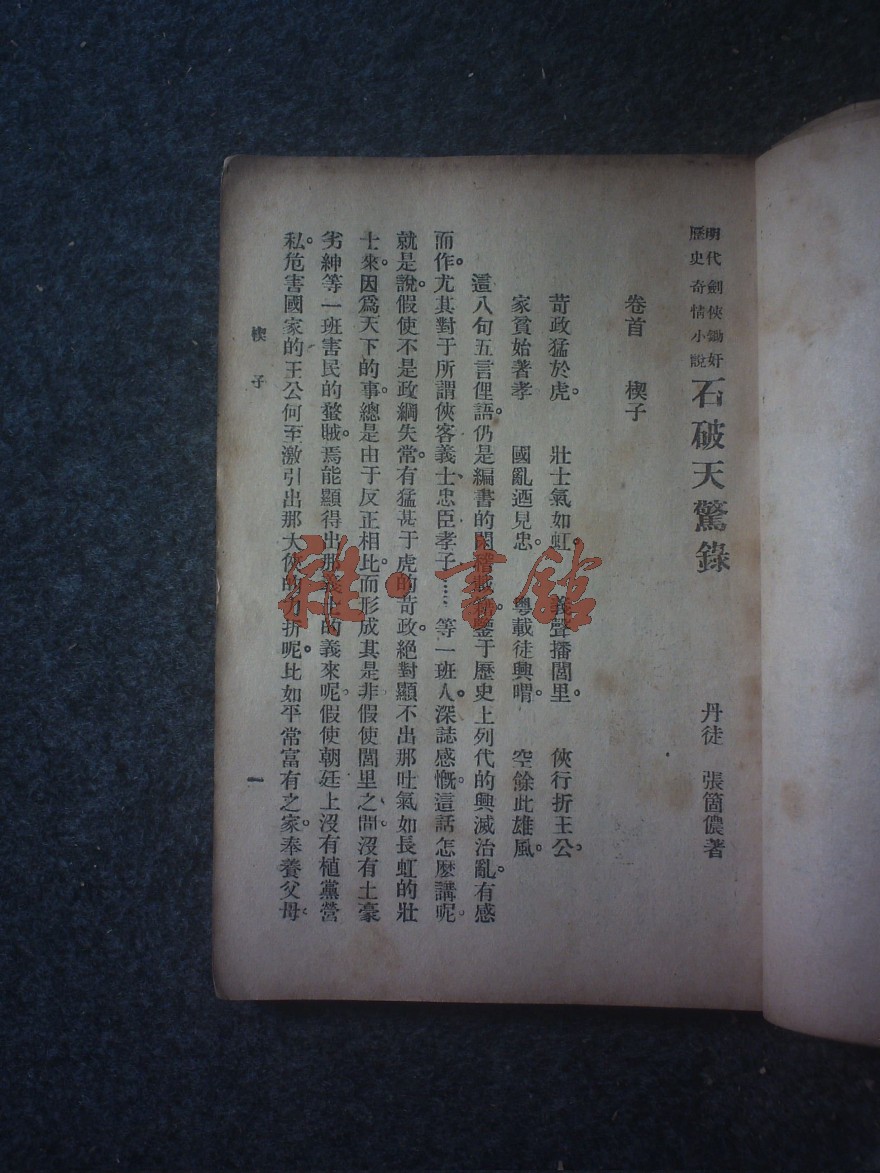 明代劍俠鋤奸
歷史奇情小說
石破天驚錄
丹徒　張箇儂著
卷首　楔子
苛政猛於虎。　壯士氣如虹。　義聲播閭里。　俠行折王公。
家貧始著孝　國亂迺見忠。　粵載徒興喟。　空餘此雄風。
這八句五言俚語。仍是編書的閑
鑒于歷史上列代的興滅治亂。有感
而作。尤其對于所謂俠客義士、忠臣孝子……等一班人。深誌感慨。這話怎麽講呢。
就是說。假使不是政綱失常。有猛甚于虎的苛政。絕對顯不出那吐氣如長虹的壯
士來。因爲天下的事。總是由于反正相比。而形成其是非。假使閭里之間。沒有土豪
劣紳等一班害民的蟊賊。焉能顯得出那義士的義來呢。假使朝廷上沒有植黨營
私。危害國家的王公何至激引出那大俠的力折呢。比如平常富有之家。奉養父母
楔子
一
雅·書館